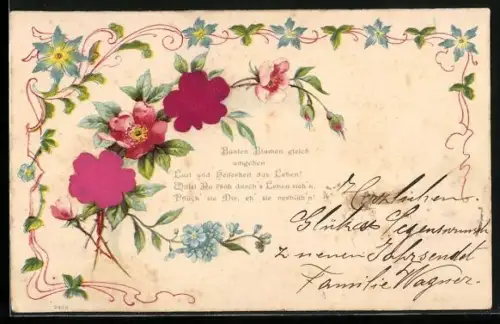 Bunten Blumen gleich
umgeben
Lust und Heiterkeit das Leben!
Du froh durch's Leben
Pflück' sie Dir, eh' sie verblüh'n!
Herzlichen
Glücks Segenswunsch
z neuen Jahr sendet
Familie Wagner.